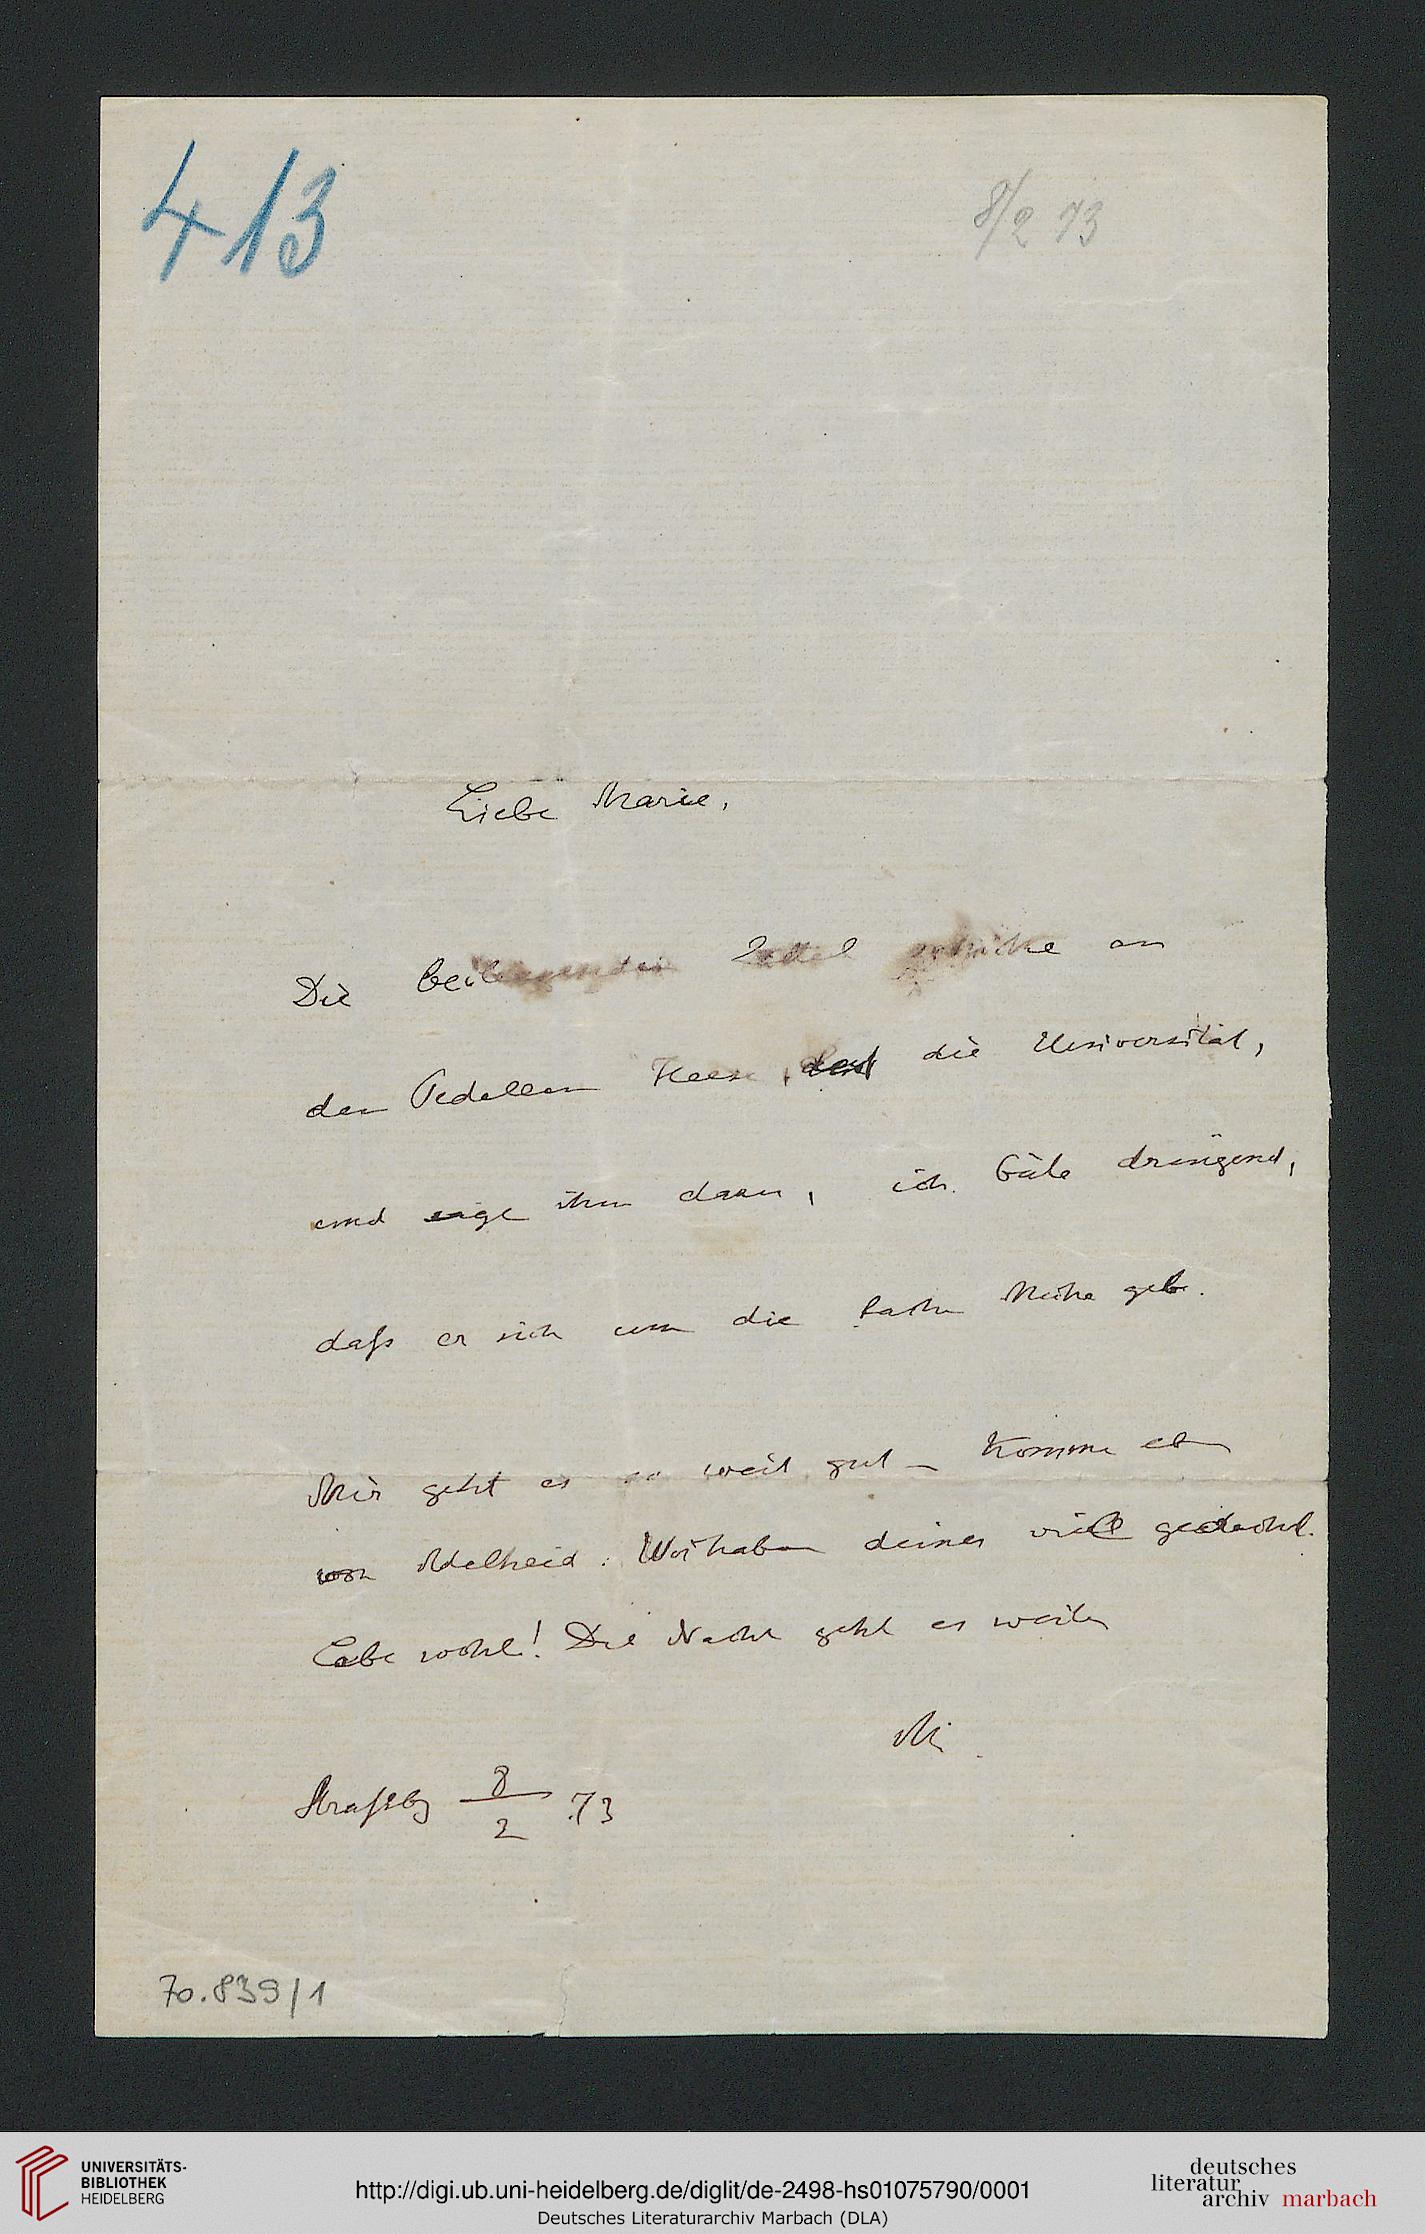 413
8/2 73
Liebe Marie,
Die beiliegenden Zettel schicke an
den Pedellen die Universität,
und sage ihm dazu, ich bäte dringend,
daß er sich um die Mühe gebe.
Mir geht es so weit gut – Komme eben
von Adelheid. Wir haben deiner viel gedacht.
Lebe wohl! Die Nacht geht es weiter
M.
Straßbg 8/2 73
70.839/1
UNIVERSITÄTS-
BIBLIOTHEK
HEIDELBERG
http://digi.ub.uni-heidelberg.de/diglit/de-2498-hs01075790/0001
Deutsches Literaturarchiv Marbach (DLA)
deutsches
literatur
archiv marbach